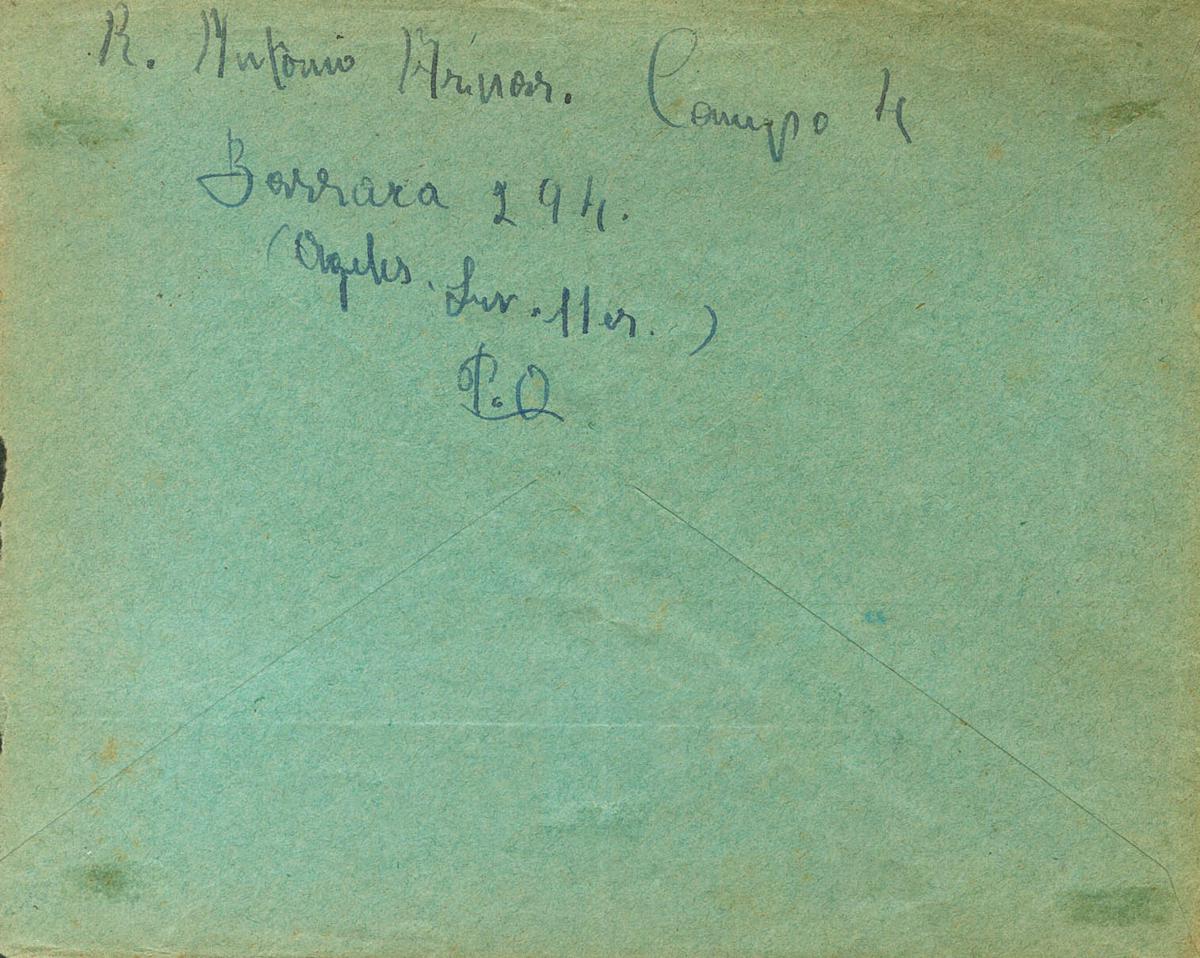 R. Antonio Arnar. Campo 4
Barraca 294.
(Ageles. Sur. Mer.)
P.O